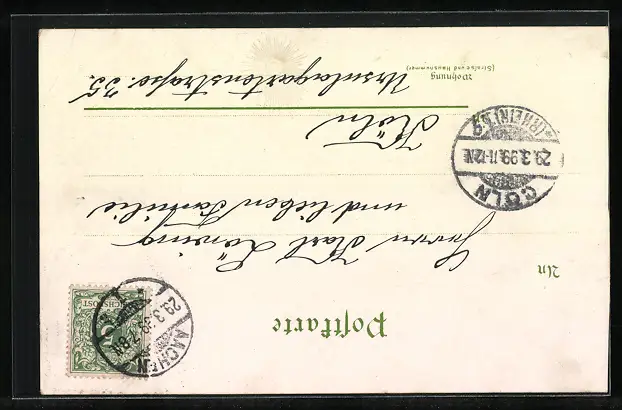 Postkarte
An
Herrn Karl Löning
und lieben Familie
Köln
Wohnung
(Straße und Hausnummer)
Ursulagartenstraße 35.
AACHEN
29.3.99
REICHSPOST
5
CÖLN
29.3.99.11-12N.
*(RHEIN)1